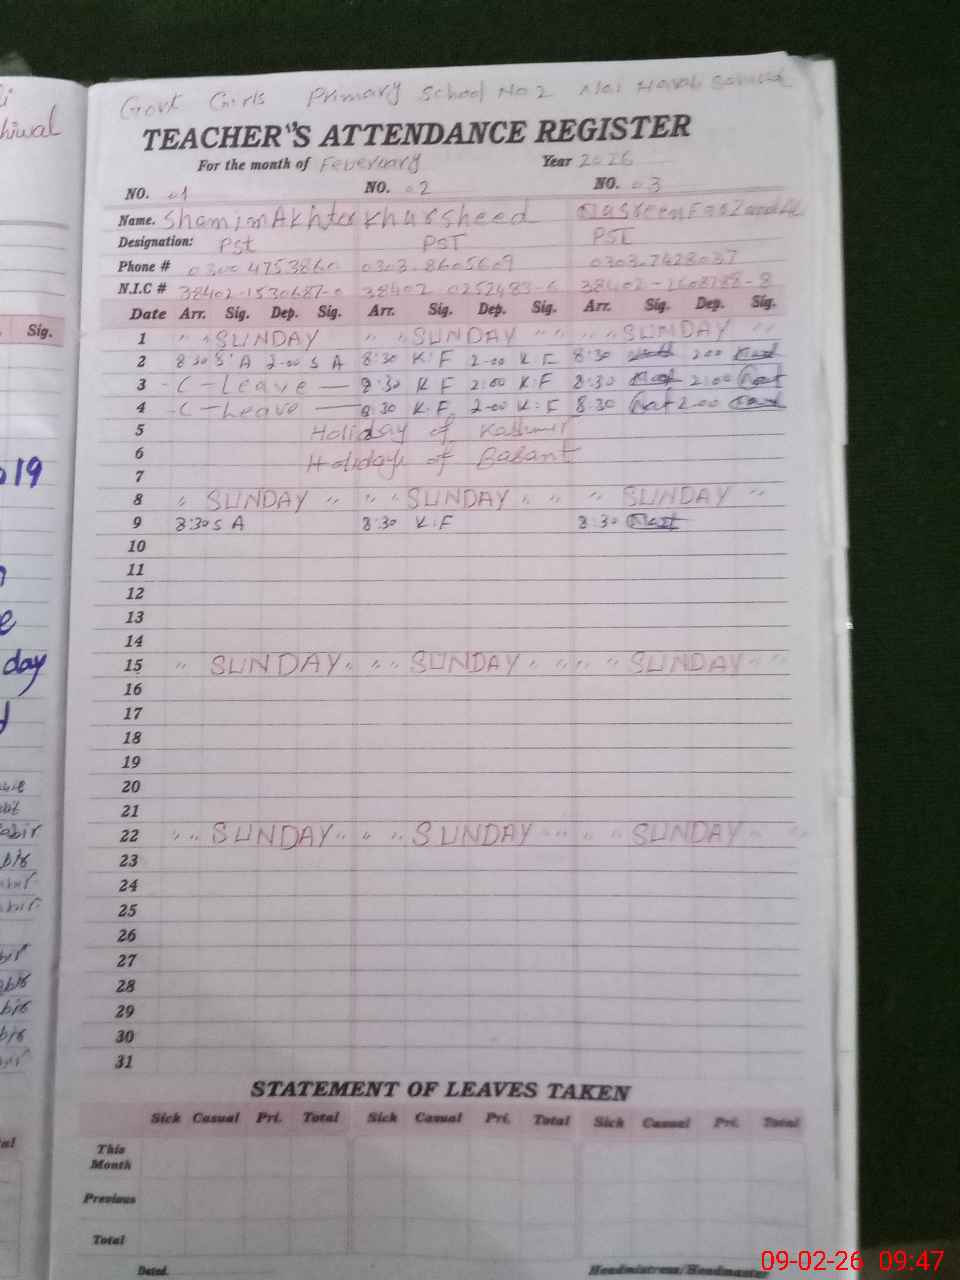 Govt Girls Primary School No 2
TEACHER'S ATTENDANCE REGISTER
For the month of Feberuary Year 2026
NO. 01 NO. 02 NO. 03
Name. Shamim Akhter Khursheed
Designation: Pst PST PST
Phone # 0300 4753860 0303.8605609 0303.7428037
N.I.C # 38402-1530687-0 38402
Date Arr. Sig. Dep. Sig. Arr. Sig. Dep. Sig. Arr. Sig. Dep. Sig.
1 " " SUNDAY " " SUNDAY " " " " SUNDAY "
2 8 30 S A 2-00 S A 8:30 K.F 2-00 K.F 8:30 2 00
3 -C-Leave — 8:30 K F 2:00 K.F 8:30 2:00
4 -C-Leave — 8 30 K.F 2-00 K.F 8.30 2.00
5 Holiday of Kashmir
6 Holiday of Basant
7
8 " SUNDAY " " " SUNDAY " " " SUNDAY "
9 8:30 S A 8:30 K.F 8:30
10
11
12
13
14
15 " SUNDAY " " " SUNDAY " " " " SUNDAY " "
16
17
18
19
20
21
22 " " SUNDAY " " " SUNDAY " " " " SUNDAY "
23
24
25
26
27
28
29
30
31
STATEMENT OF LEAVES TAKEN
Sick Casual Pri. Total Sick Casual Pri. Total Sick Casual Pri. Total
This
Month
Previous
Total
Dated. Headmistress/Headmaster
Sig.
019
day
09-02-26 09:47